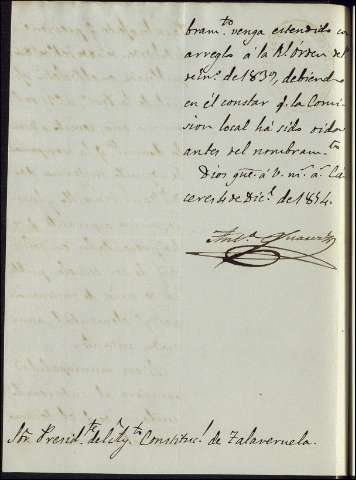 bram.to venga estendido con
arreglo á la Rl orden del
de 1839, debiendo
en él constar q.e la Comi-
sion local há sido oida
antes del nombram.to
Dios gue. á V. m.s a.s Cá-
ceres 4 de Dic.e de 1854.
Sor. Presid.te del Ay.to Constituc.l de Talaveruela.